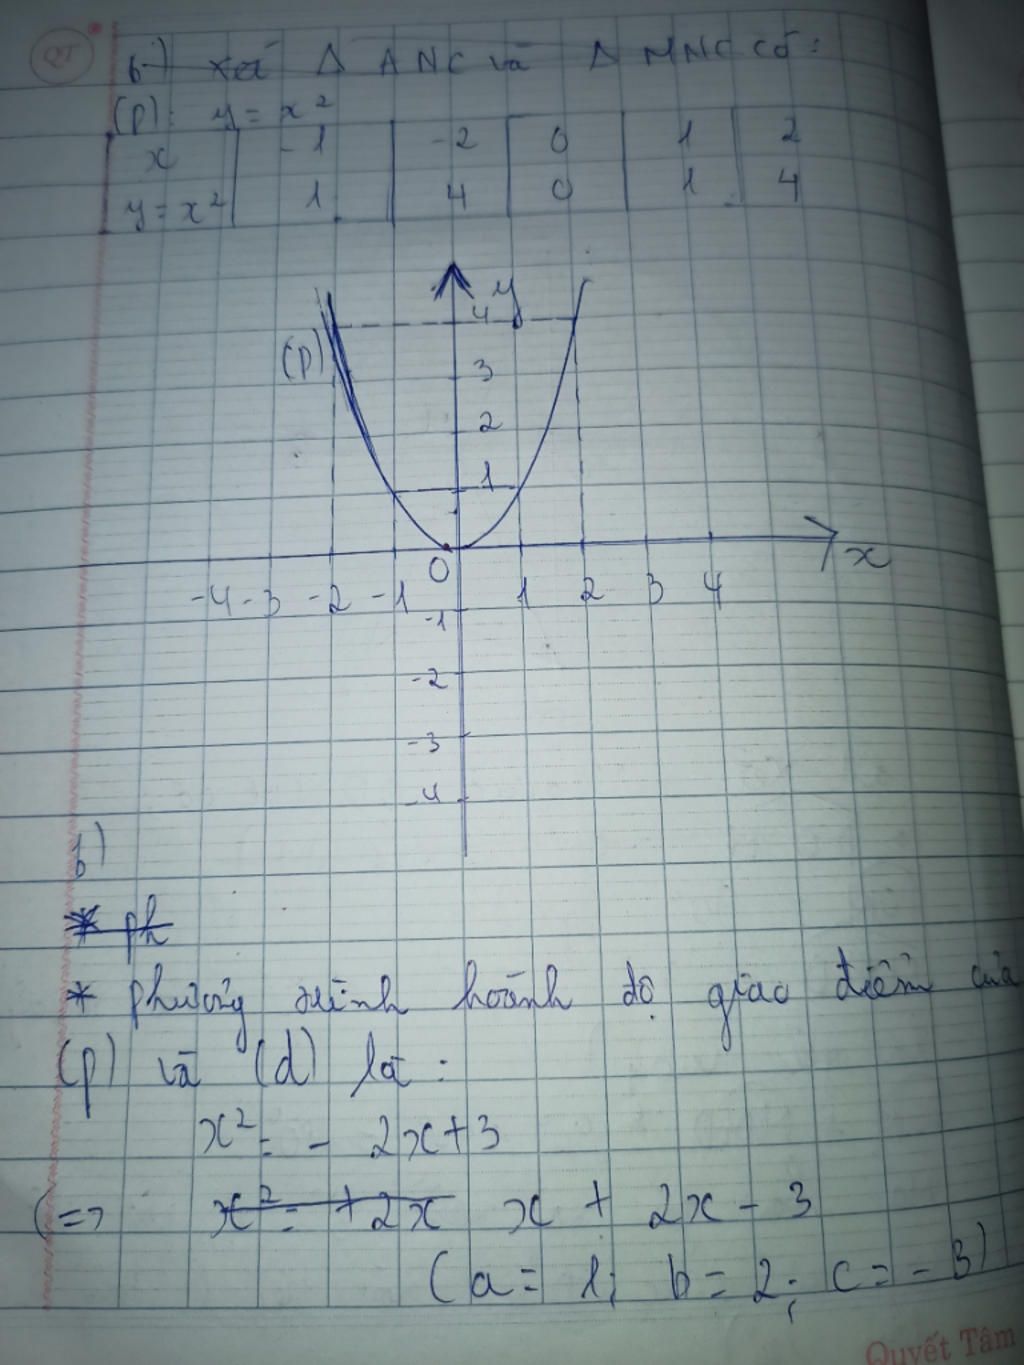 QT
b) xét Δ ANC và Δ MNC có:
(P): y = x²
x -1 -2 0 1 2
y = x² 1 4 0 1 4
y
4
(P)
3
2
1
O
x
-4 -3 -2 -1 1 2 3 4
-1
-2
-3
-4
b)
* ph
* phương trình hoành độ giao điểm của
(P) và (d) là:
x² = - 2x+3
(=> x² = +2x x + 2x - 3
(a = 1; b = 2; c = -3)
Quyết Tâm